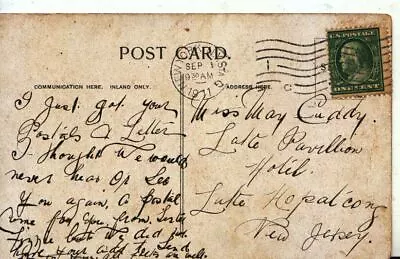 POST CARD.
COMMUNICATION HERE. INLAND ONLY.
ADDRESS HERE.
SEP 1
AM
1911
U.S. POSTAGE
ONE CENT
I Just got your
Postals & Letter
I thought we would
never hear or see
You again, A Postal
come for you from
time but we did not
have your add to send
Miss May Cuddy,
Lake Pavillion
Hotel
Lake Hopatcong
New Jersey.